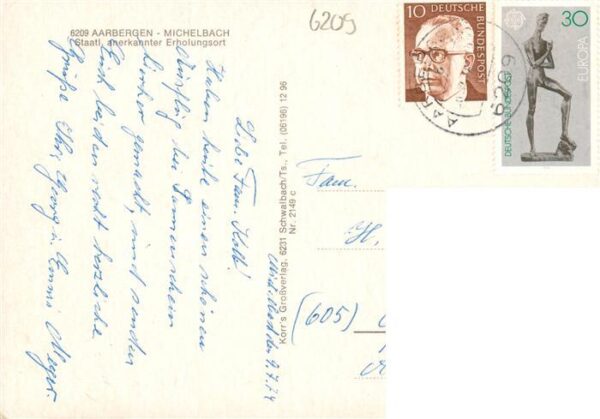 6209 AARBERGEN - MICHELBACH
Staatl. anerkannter Erholungsort
6209
10
DEUTSCHE
BUNDESPOST
30
EUROPA
DEUTSCHE BUNDESPOST
AARBER
6209
Michelbach den 9.7.74
Liebe Fam. Kolb!
Haben heute einen schönen
Ausflug bei Sonnenschein
hierher gemacht, und senden
Euch beiden recht herzliche
Grüße Ihr, Georg u. Emmi Meyer.
Korr's Großverlag, 6231 Schwalbach/Ts., Tel. (06196) 12 96
Nr. 2149 c
Fam.
H.
(605)